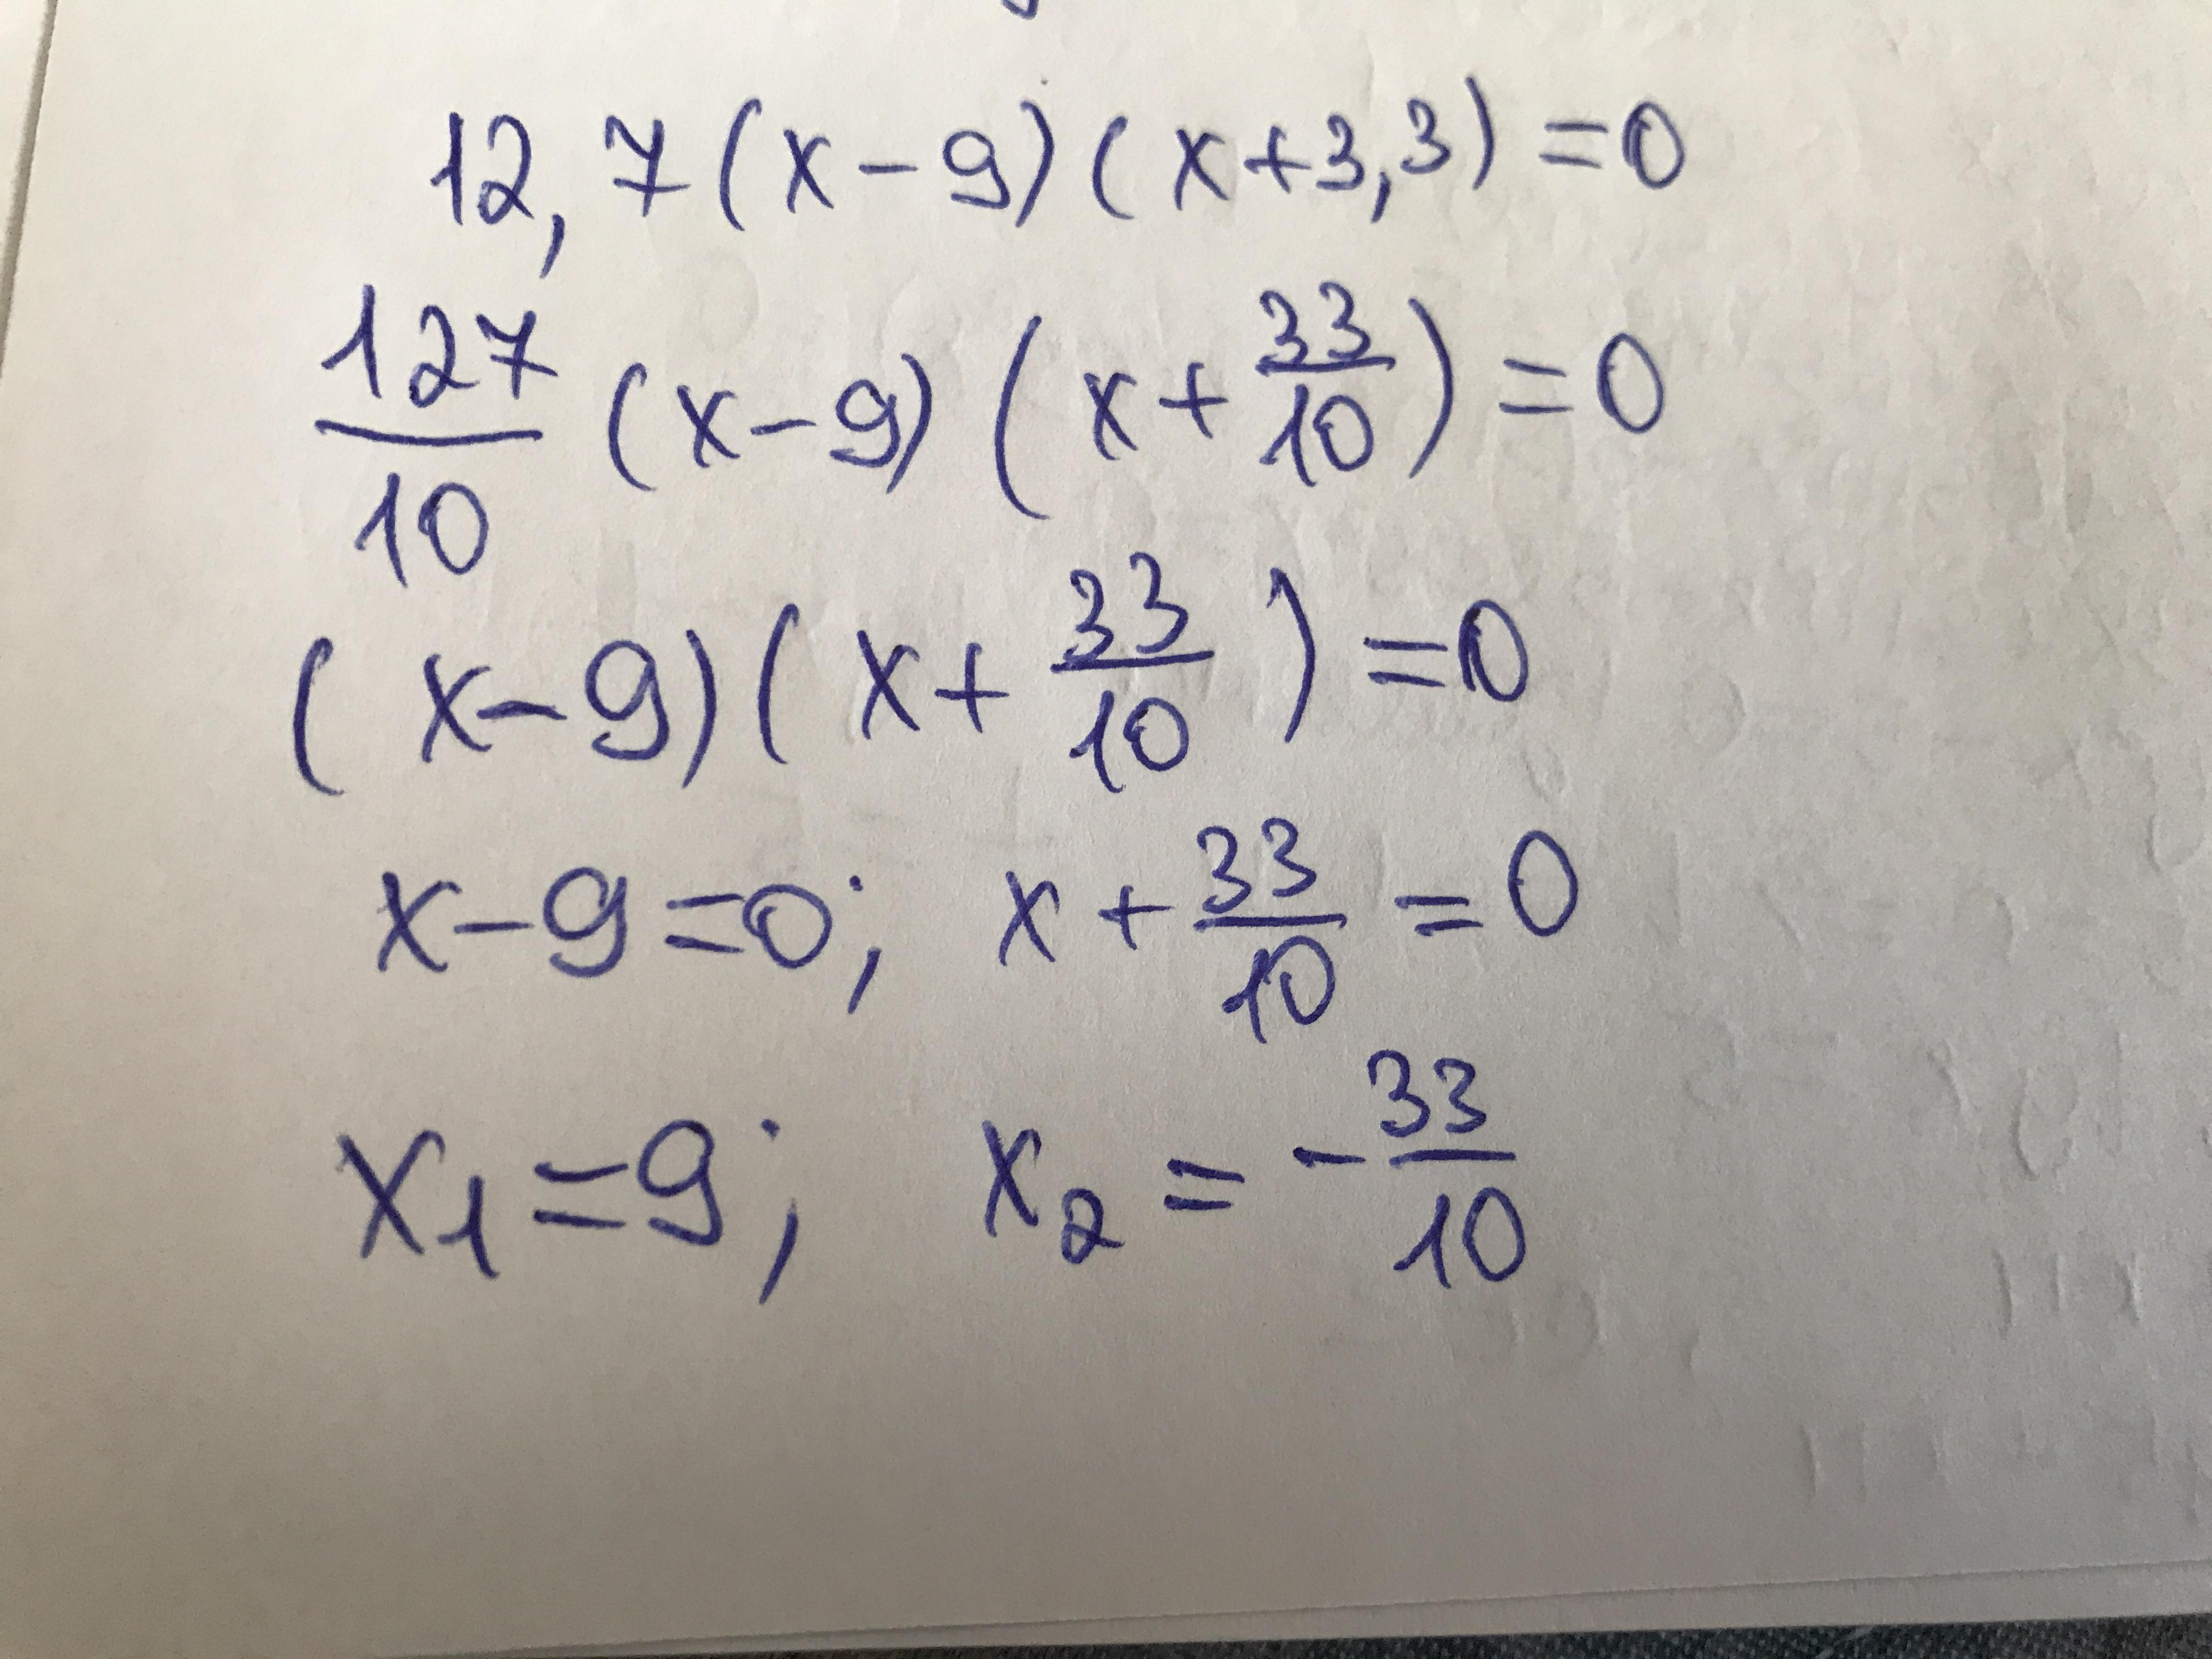 12,7(x-9)(x+3,3)=0
127/10 (x-9)(x+33/10)=0
(x-9)(x+33/10)=0
x-9=0; x+33/10=0
x₁=9; x₂=-33/10